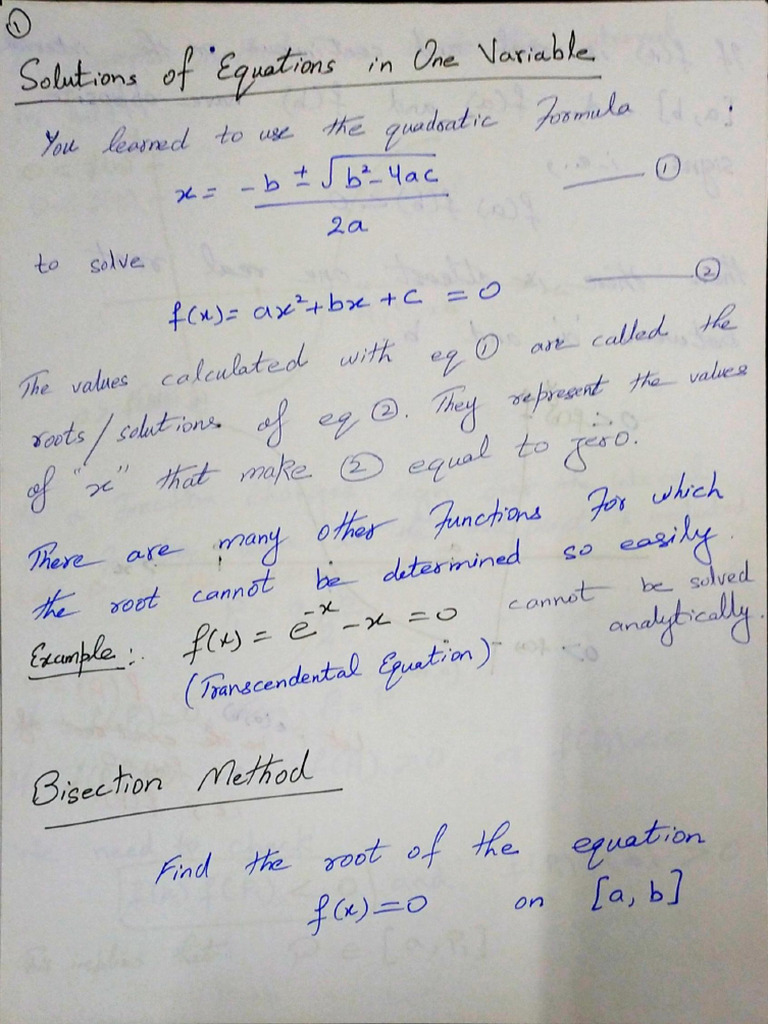 ①
Solutions of Equations in One Variable
You learned to use the quadratic Formula :
x = -b ± √b²-4ac / 2a ①
to solve
f(x) = ax²+bx+c = 0 ②
The values calculated with eq ① are called the
roots/solutions of eq ②. They represent the values
of "x" that make ② equal to zero.
There are many other Functions For which
the root cannot be determined so easily.
Example:. f(x) = e^-x - x = 0 cannot be solved
analytically.
(Transcendental Equation)
Bisection Method
Find the root of the equation
f(x)=0 on [a, b]